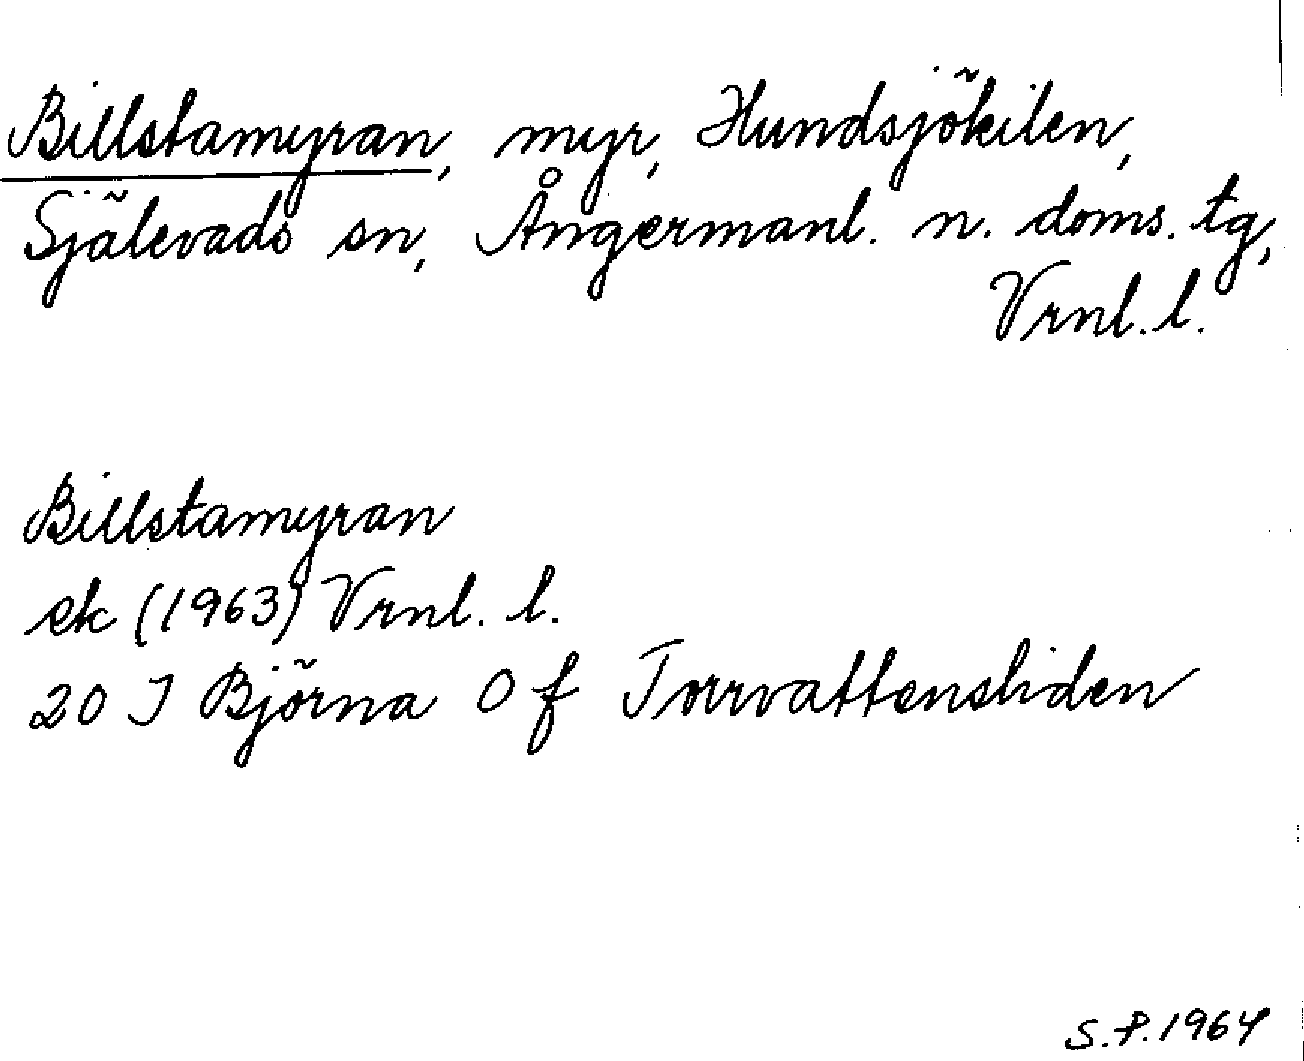 Billstamyran, myr, Hundsjökilen,
Själevads sn, Ångermanl. n. doms. tg,
Vrnl. l.
Billstamyran
ek (1963) Vrnl. l.
20 I Björna 0 f Torrvattensliden
S.P. 1964